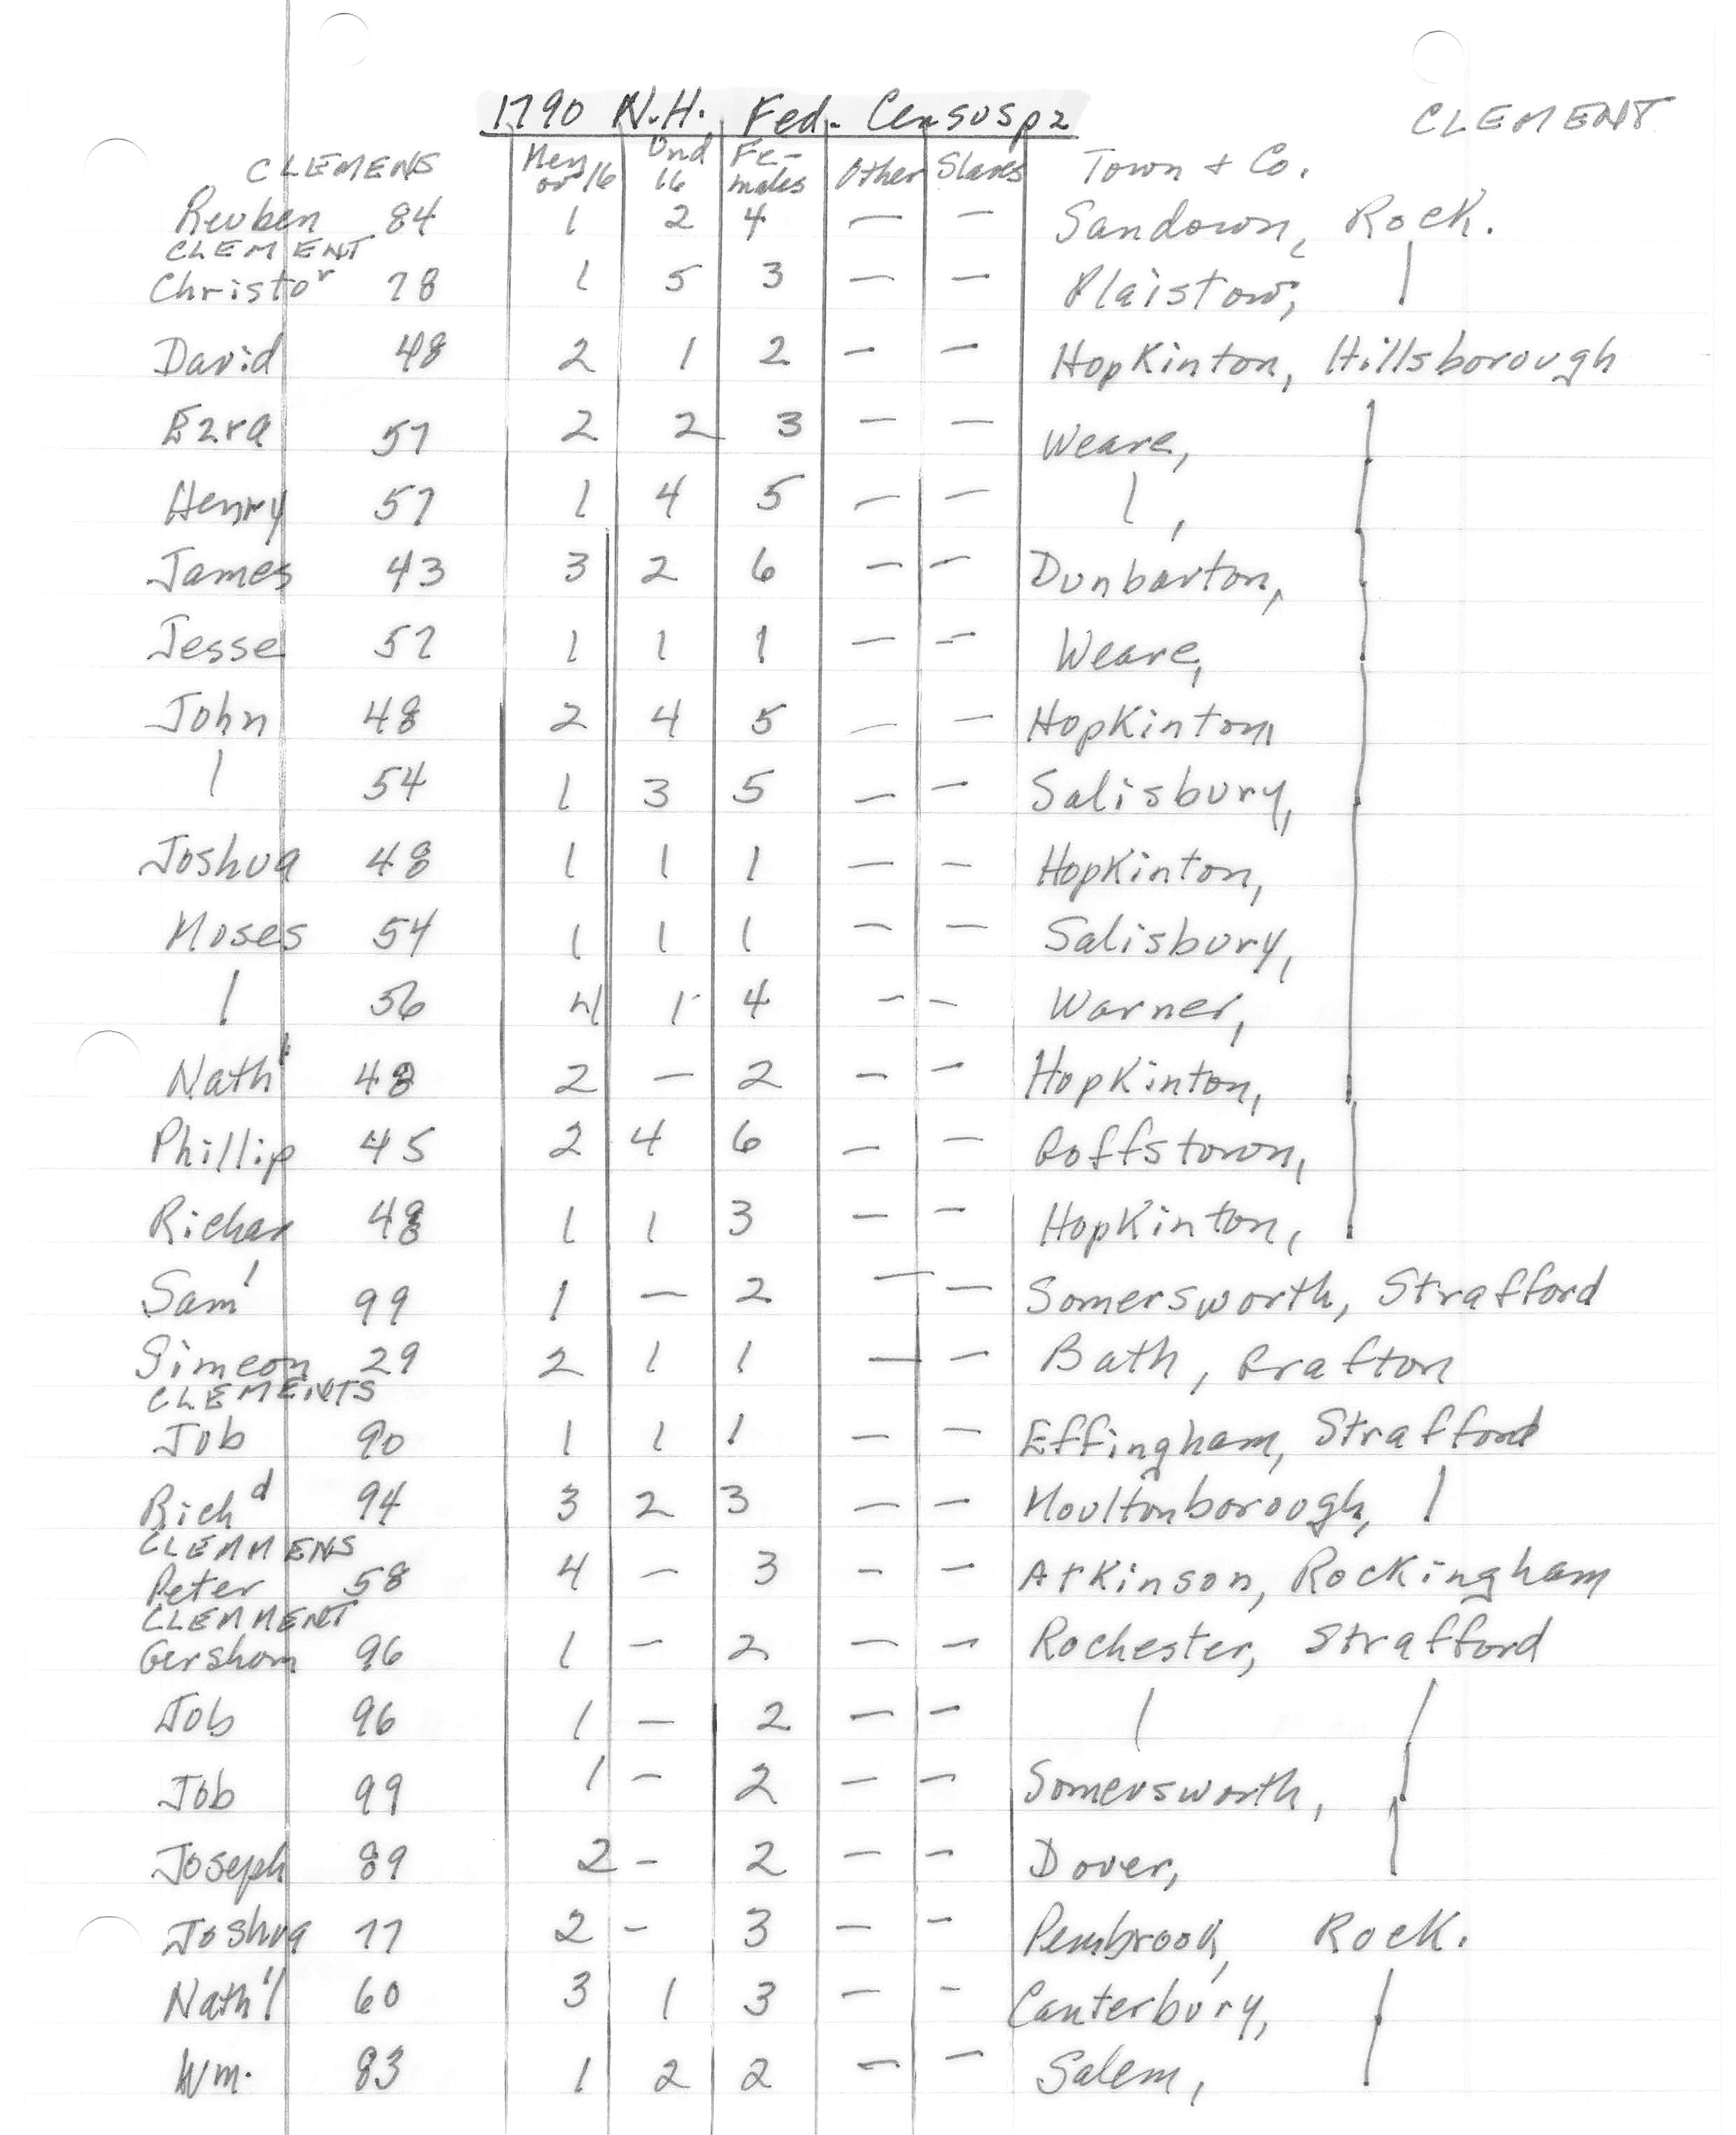 1790 N.H. Fed. Census p2 CLEMENT
CLEMENS Men ov 16 Und 16 Fe-males Other Slaves Town + Co.
Reuben 84 1 2 4 — — Sandown, Rock.
CLEMENT
Christor 78 1 5 3 — — Plaistow, |
David 48 2 1 2 — — Hopkinton, Hillsborough
Ezra 57 2 2 3 — — Weare, |
Henry 57 1 4 5 — — | , |
James 43 3 2 6 — — Dunbarton, |
Jesse 57 1 1 1 — — Weare, |
John 48 2 4 5 — — Hopkinton, |
| 54 1 3 5 — — Salisbury, |
Joshua 48 1 1 1 — — Hopkinton, |
Moses 54 1 1 1 — — Salisbury, |
| 56 4 1 4 — — Warner, |
Nathl 48 2 — 2 — — Hopkinton, |
Phillip 45 2 4 6 — — Goffstown, |
Richar 48 1 1 3 — — Hopkinton, |
Saml 99 1 — 2 — — Somersworth, Strafford
Simeon 29 2 1 1 — — Bath, Grafton
CLEMENTS
Job 90 1 1 1 — — Effingham, Strafford
Richd 94 3 2 3 — — Moultonborough, |
CLEMMENS
Peter 58 4 — 3 — — Atkinson, Rockingham
CLEMMENT
Gershom 96 1 — 2 — — Rochester, Strafford
Job 96 1 — 2 — — | |
Job 99 1 — 2 — — Somersworth, |
Joseph 89 2 — 2 — — Dover, |
Joshua 77 2 — 3 — — Pembrook, Rock.
Nath'l 60 3 1 3 — — Canterbury, |
Wm. 83 1 2 2 — — Salem, |